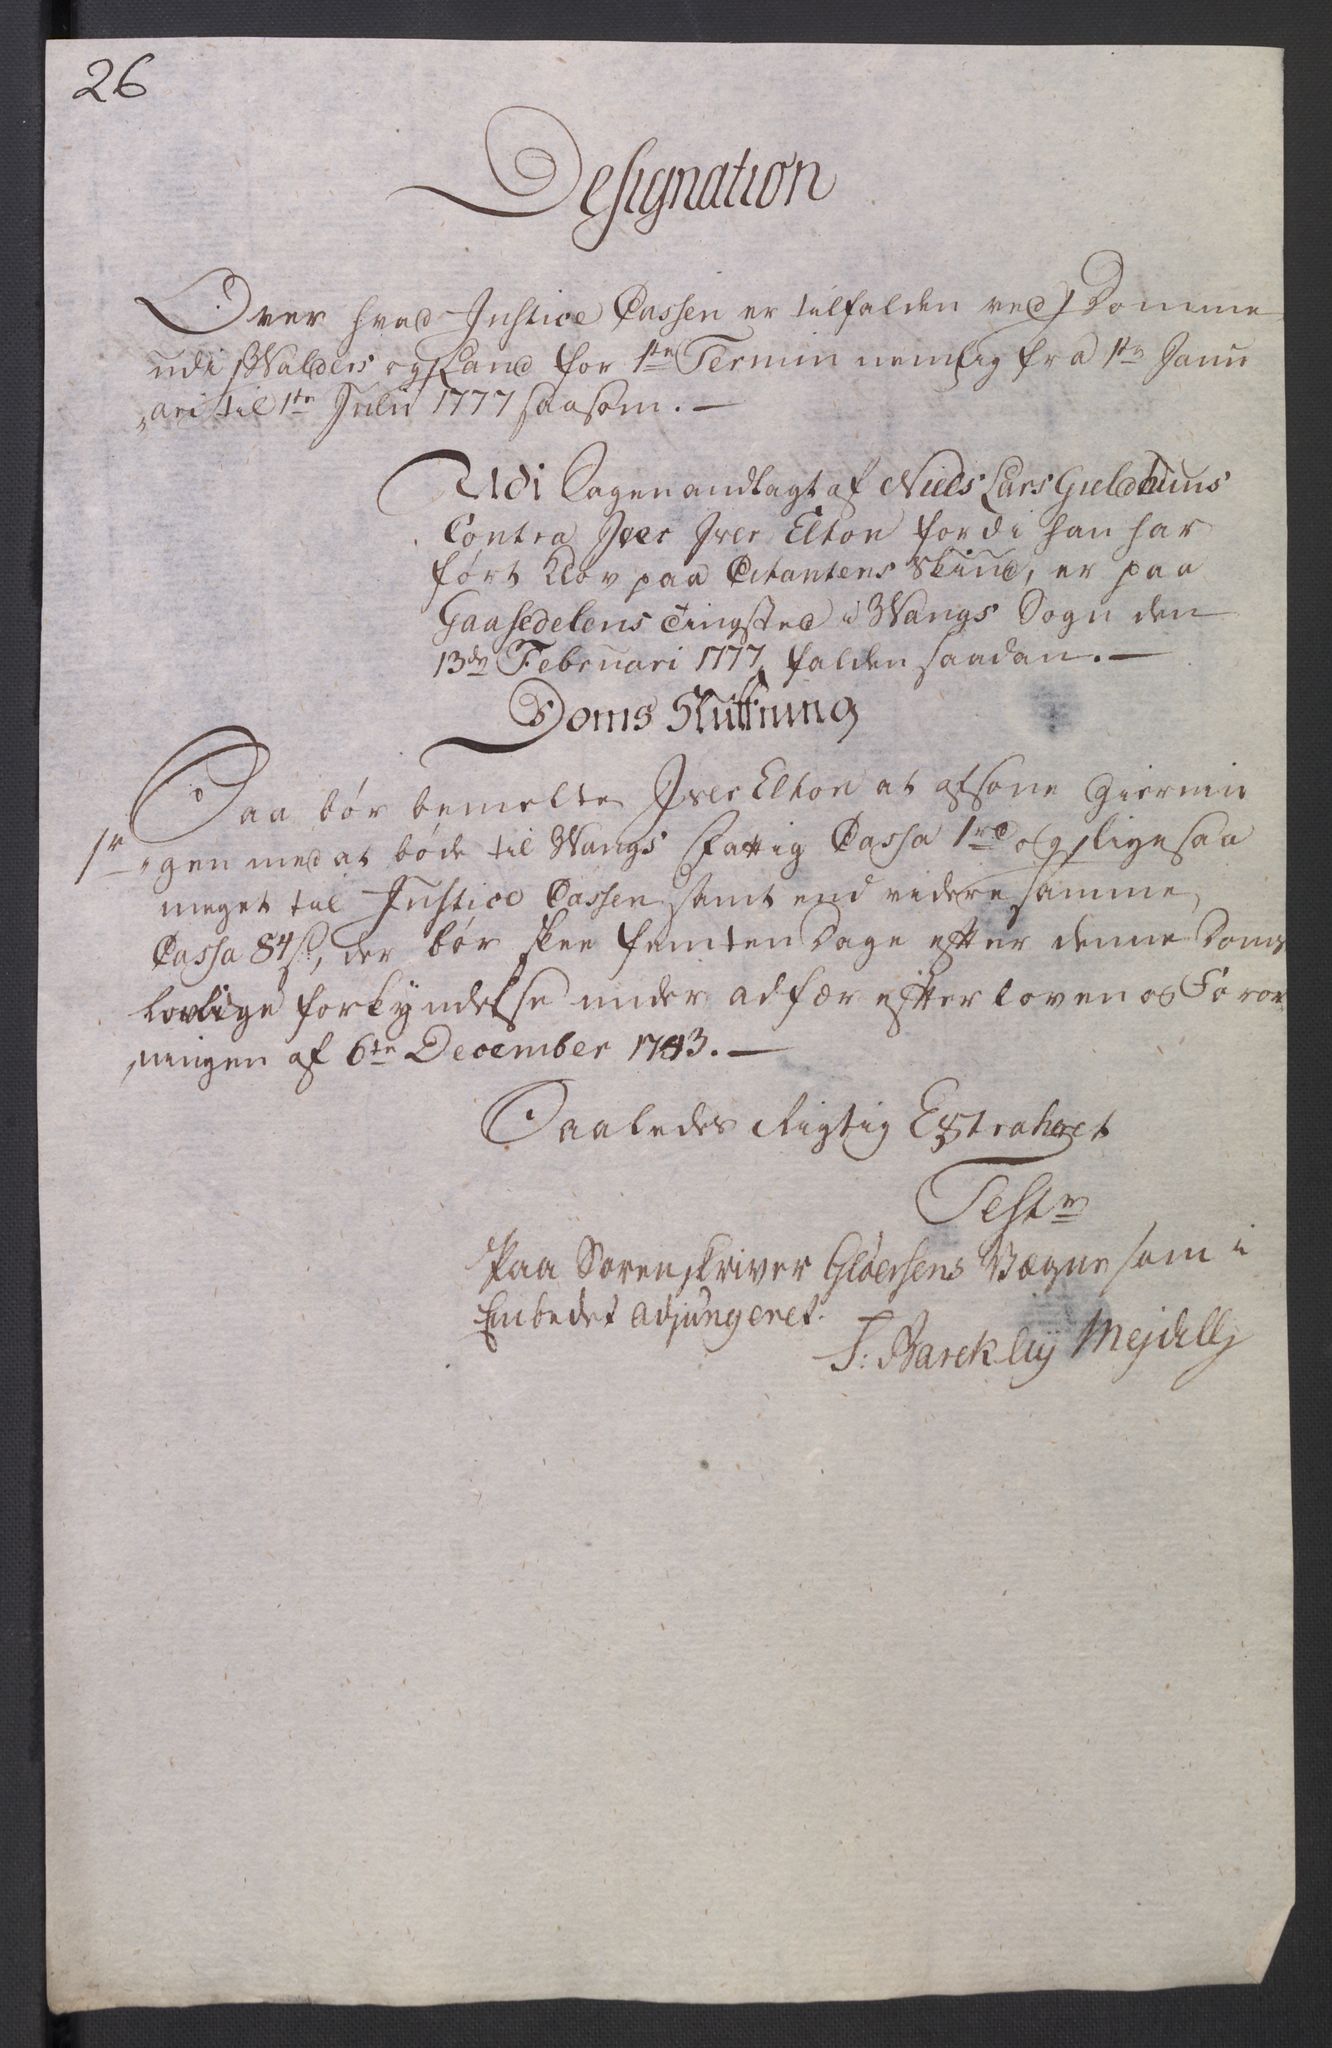 26
Designation
Over hvad Justice Cassen er tilfalden ved Domme
udi Walders og Land for 1te Termin nemlig fra 1te Janu
„ari til 1te Julii 1777 saasom. —
Udi Sagen andlagt af Niels Lars Gieldhuus
Contra Iver Iver Elton fordi han har
ført Klov paa Citantens Skind, er paa
Gaasedelens Tingsted i Wangs Sogn den
13de Februari 1777 falden saadan. —
Doms Slutning
Saa bør bemelte Iver Elton at afsone Giernin
1r „gen med at bøde til Wangs Fattig Cassa 1rd og ligesaa
meget til Justice Cassen samt end videre samme
Cassa 84 s, der bør skee femten Dage efter denne Doms
lovlige forkyndelse under adfær efter loven og Foror
„ningen af 6te December 1743. —
Saaledes Rigtig Extraheret
Test
Paa Sorenskriver Gløersens Vægne som i
Embedet adjungeret.
T: Barckleij Mejdell